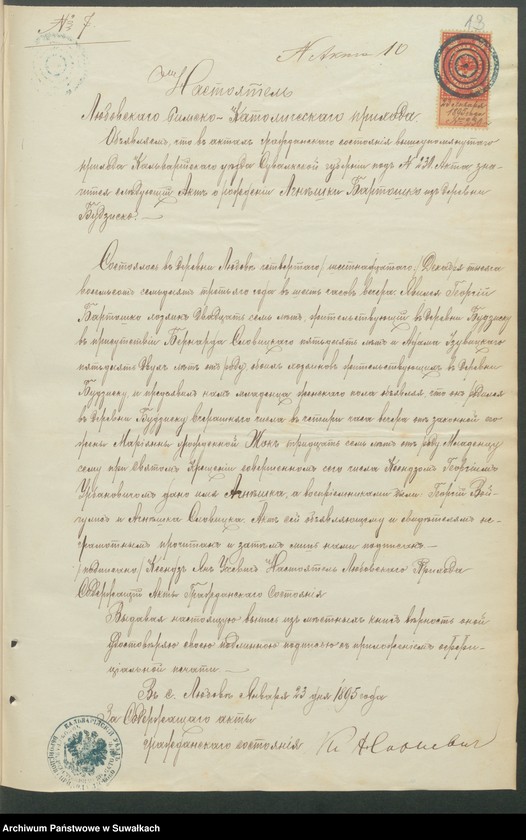 № 7.
13
N Акта 10
Настоятель
Любовскаго Римско-Католическаго прихода.
Объявляетъ, что въ актахъ гражданскаго состоянія вышеупомянутаго
прихода Кальварійскаго уѣзда Сувалкской губерніи подъ N 239 Акта зна-
чится слѣдующій Актъ о рожденіи Агнѣшки Бартошко изъ деревни
Будзиско. —
Состоялось въ деревни Любовѣ четвертаго /шестнадцатаго/ Декабря тысяча
восемьсотъ семьдесятъ третьяго года въ шесть часовъ вечера. Явился Георгій
Бартошко хозяинъ двадцать семь лѣтъ, жительствующій въ деревни Будзиску
въ присутствіи Бернарда Словицкаго пятьдесятъ лѣтъ и Адама
пятьдесятъ двухъ лѣтъ отъ роду, обоихъ хозяиновъ жительствующихъ въ деревни
Будзиску, и предъявилъ намъ младенца женскаго пола объявляя что онъ родился
въ деревни Будзиску вчерашняго числа въ четыре часа вечера отъ законной его
жены Маріянны урожденной тридцать семь лѣтъ отъ роду. Младенцу
сему при Святомъ Крещеніи совершенномъ сего числа Ксендзомъ Георгіемъ
Урбановичомъ дано имя Агнѣшка, а воспріемниками были Георгій Вой-
и Агнѣшка Словицка. Актъ сей объявляющему и свидѣтелямъ не-
грамотнымъ прочитанъ и затѣмъ лишь нами подписанъ. —
/подписано/ Ксендзъ Янъ Настоятель Любовскаго Прихода
Содержащій Акты Гражданскаго Состоянія
Выдавая настоящую выпись изъ мѣстныхъ книгъ вѣрность оной
удостовѣряю своею подлинною подписью съ приложеніемъ оффи-
ціальной печати. —
Въ с. Любовѣ Января 23 дня 1895 года
За Содержащаго акты
гражданскаго состоянія Кс.
Archiwum Państwowe w Suwałkach